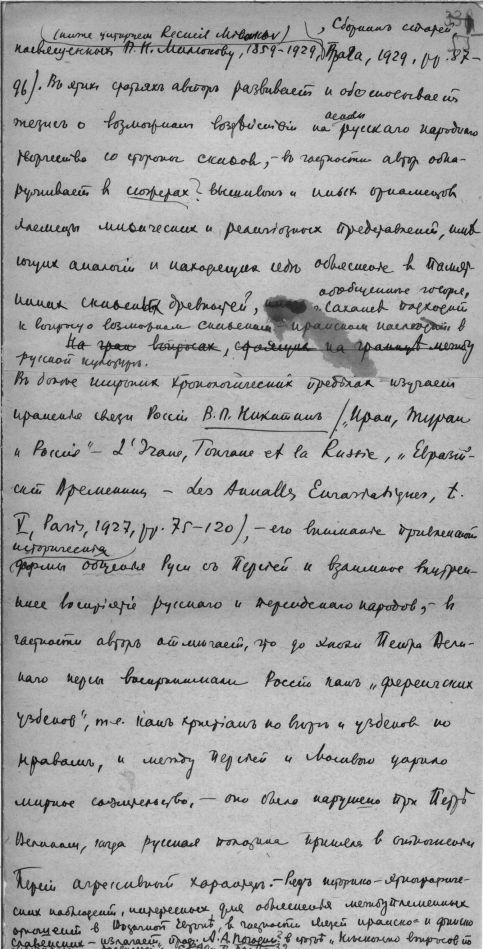 (ниже цитируем Recueil Milukov), Сборник статей
посвященных П. Н. Милюкову, 1859-1929, Прага, 1929, pp. 87-
96). В этих статьях автор развивает и обосновывает
тезис о возможном воздействии на русскаго народнаго
творчество со стороны скифов, – в частности автор обна-
руживает в узорах? вышивок и иных орнаментов
элементы мифических и религиозных представлений, имѣ-
ющих аналогии и находящих себѣ объяснение в памят-
никах скифских древностей, обобщеннѣе говоря, Сахановъ подходит
к вопросу о возможном скифском – иранском наследии в
русской культурѣ.
Въ болѣе широких хронологических предѣлах изучает
иранския связи России В. П. Никитинъ ("Иран, Туран
и Россия" – L'Iran, Tourane et la Russie, "Евразий-
ский Временник – Les Annales Eurasiatiques, t.
V, Paris, 1927, pp. 75-120), – его внимание привлекают
исторические
формы общения Руси съ Персией и взаимное внутрен-
нее восприятие русскаго и персидскаго народов, – в
частности авторъ отмѣчает, что до эпохи Петра Вели-
каго персы воспринимали Россию какъ "френгских
узбеков", т.е. какъ христиан по вѣрѣ и узбеков по
нравамъ, и между Персией и Москвою царило
мирное сожительство, – оно было нарушено при Петрѣ
Великом, когда русская политика приняла в отношении
Персии агрессивный характеръ. – Рядъ историко-этнографиче-
ских наблюдений, интересных для объяснения междуплеменных
отношений в Восточной Европѣ, в частности между ирано- и финно-
славянских – излагает проф. А. Л. Погодин в статьѣ "Нѣсколько вопросов